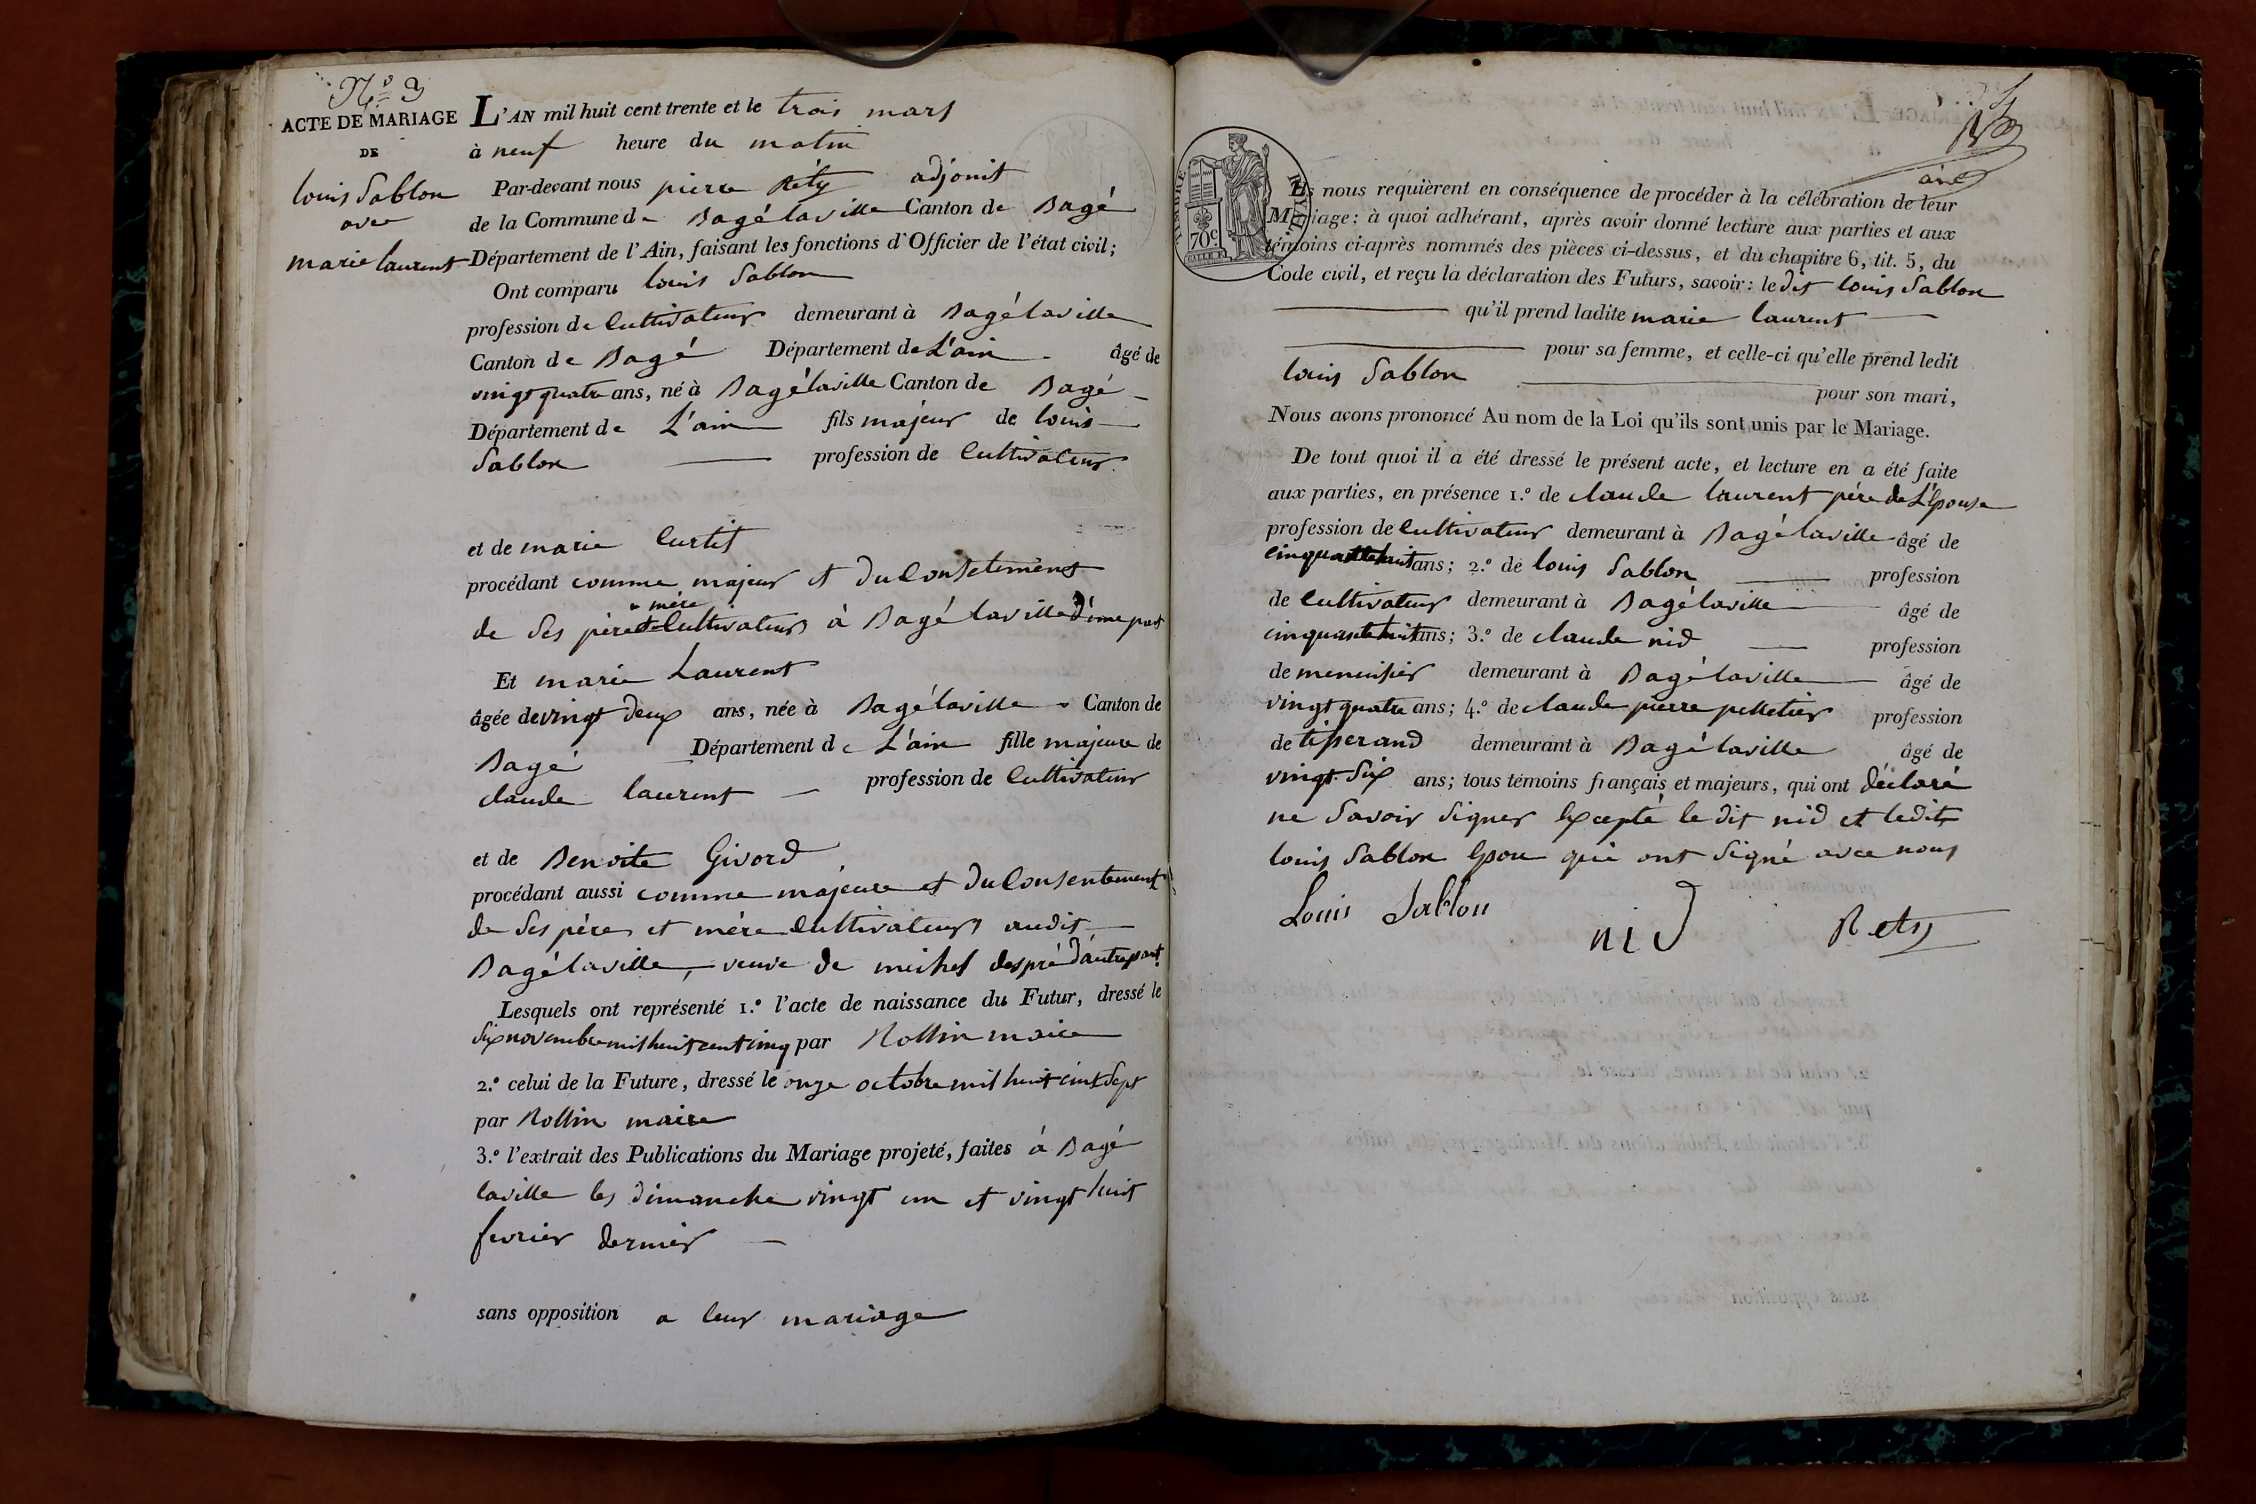 N.o 9
ACTE DE MARIAGE
DE
louis Sablon
avec
marie laurent
L'AN mil huit cent trente et le trois mars
à neuf heure du matin
Par-devant nous pierre Réty adjoint
de la Commune de Bagé laville Canton de Bagé
Département de l'Ain, faisant les fonctions d'Officier de l'état civil;
Ont comparu louis Sablon
profession de Cultivateur demeurant à Bagé laville
Canton de Bagé Département de L'ain âgé de
vingt quatre ans, né à Bagé laville Canton de Bagé
Département de L'ain fils majeur de louis
Sablon profession de Cultivateur
et de marie Curtit
procédant comme majeur et du Consetement
de Ses père et mère Cultivateurs à Bagé laville d'une part
Et marie Laurent
âgée de vingt deux ans, née à Bagé laville Canton de
Bagé Département de L'ain fille majeure de
claude laurent profession de Cultivateur
et de Benoite Givord
procédant aussi comme majeure et du Consentement
de Ses père et mère Cultivateurs audit
Bagé laville, veuve de michel despré d'autre part
Lesquels ont représenté 1.º l'acte de naissance du Futur, dressé le
Six novembre mil huit cent cinq par Rollin maire
2.º celui de la Future, dressé le onze octobre mil huit cent Sept
par Rollin maire
3.º l'extrait des Publications du Mariage projeté, faites à Bagé
laville les dimanche vingt un et vingt huit
fevrier dernier
sans opposition a leur mariage
TIMBRE ROYAL
70c
Ils nous requièrent en conséquence de procéder à la célébration de leur
Mariage: à quoi adhérant, après avoir donné lecture aux parties et aux
témoins ci-après nommés des pièces ci-dessus, et du chapitre 6, tit. 5, du
Code civil, et reçu la déclaration des Futurs, savoir: le dit louis Sablon
qu'il prend ladite marie laurent
pour sa femme, et celle-ci qu'elle prend ledit
louis Sablon
pour son mari,
Nous avons prononcé Au nom de la Loi qu'ils sont unis par le Mariage.
De tout quoi il a été dressé le présent acte, et lecture en a été faite
aux parties, en présence 1.º de claude laurent père de L'Epouse
profession de Cultivateur demeurant à Bagé laville âgé de
cinquante huit ans; 2.º de louis Sablon profession
de Cultivateur demeurant à Bagé laville âgé de
cinquante huit ans; 3.º de claude nid profession
de menuisier demeurant à Bagé laville âgé de
vingt quatre ans; 4.º de claude pierre pelletier profession
de tisserand demeurant à Bagé laville âgé de
vingt Six ans; tous témoins français et majeurs, qui ont déclaré
ne Savoir Signer Excepté le dit nid et ledit
louis Sablon Epou qui ont Signé avec nous
Louis Sablon nid Rety